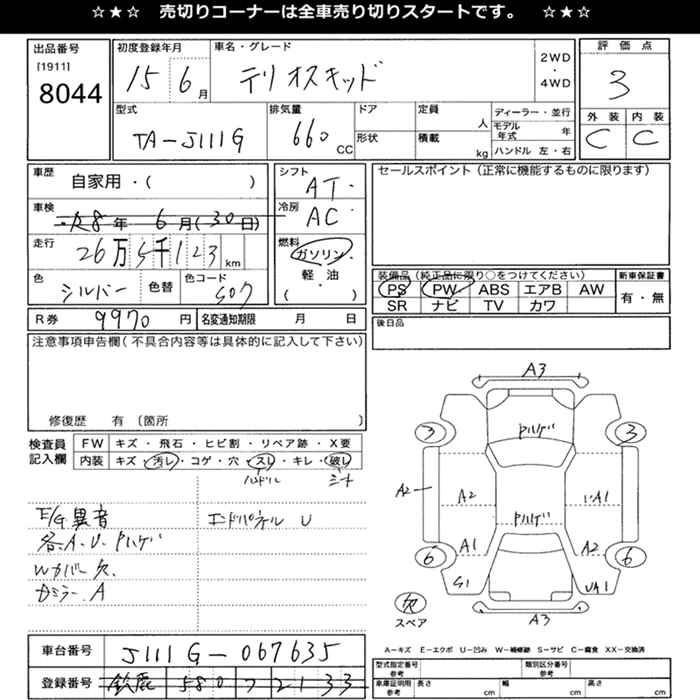 ☆★☆ 売切りコーナーは全車売り切りスタートです。 ☆★☆
出品番号 [1911] 8044
初度登録年月 15 6月
車名・グレード テリオスキッド
2WD・4WD
評価点 3
外装 C 内装 C
型式 TA-J111G
排気量 660 CC
ドア 形状
定員 人 積載 kg
ディーラー・並行
モデル年式 年
ハンドル 左・右
車歴 自家用・( )
車検 R8年 6月(30日)
走行 26万5千123km
色 シルバー 色替 色コード S07
シフト AT・
冷房 AC・
燃料 ガソリン・軽・油・( )
セールスポイント(正常に機能するものに限ります)
装備品(純正品に限り○をつけてください)
PS PW ABS エアB AW
SR ナビ TV カワ
新車保証書 有・無
R券 9970円 名変通知期限 月 日
後日品
注意事項申告欄(不具合内容等は具体的に記入して下さい)
修復歴 有〔箇所 〕
検査員記入欄
FW キズ・飛石・ヒビ割・リペア跡・X要
内装 キズ・汚レ・コゲ・穴・スレ・キレ・破レ
ハンドル シート
E/G異音 エンドパネル U
各A.U.Pハゲ
Wカバー欠
Dミラー.A
A3
Pハゲ
3 3
A2 A2 A1
Pハゲ
A1 A2
6 6
S1 UA1
欠 スペア
A3
A-キズ E-エクボ U-凹み W-補修跡 S-サビ C-腐食 XX-交換済
車台番号 J111G-067635
登録番号 鈴鹿 580 ワ 2133
型式指定番号 参考 類別区分番号 参考
車庫証明用 参考 長さ cm 幅 cm 高さ cm